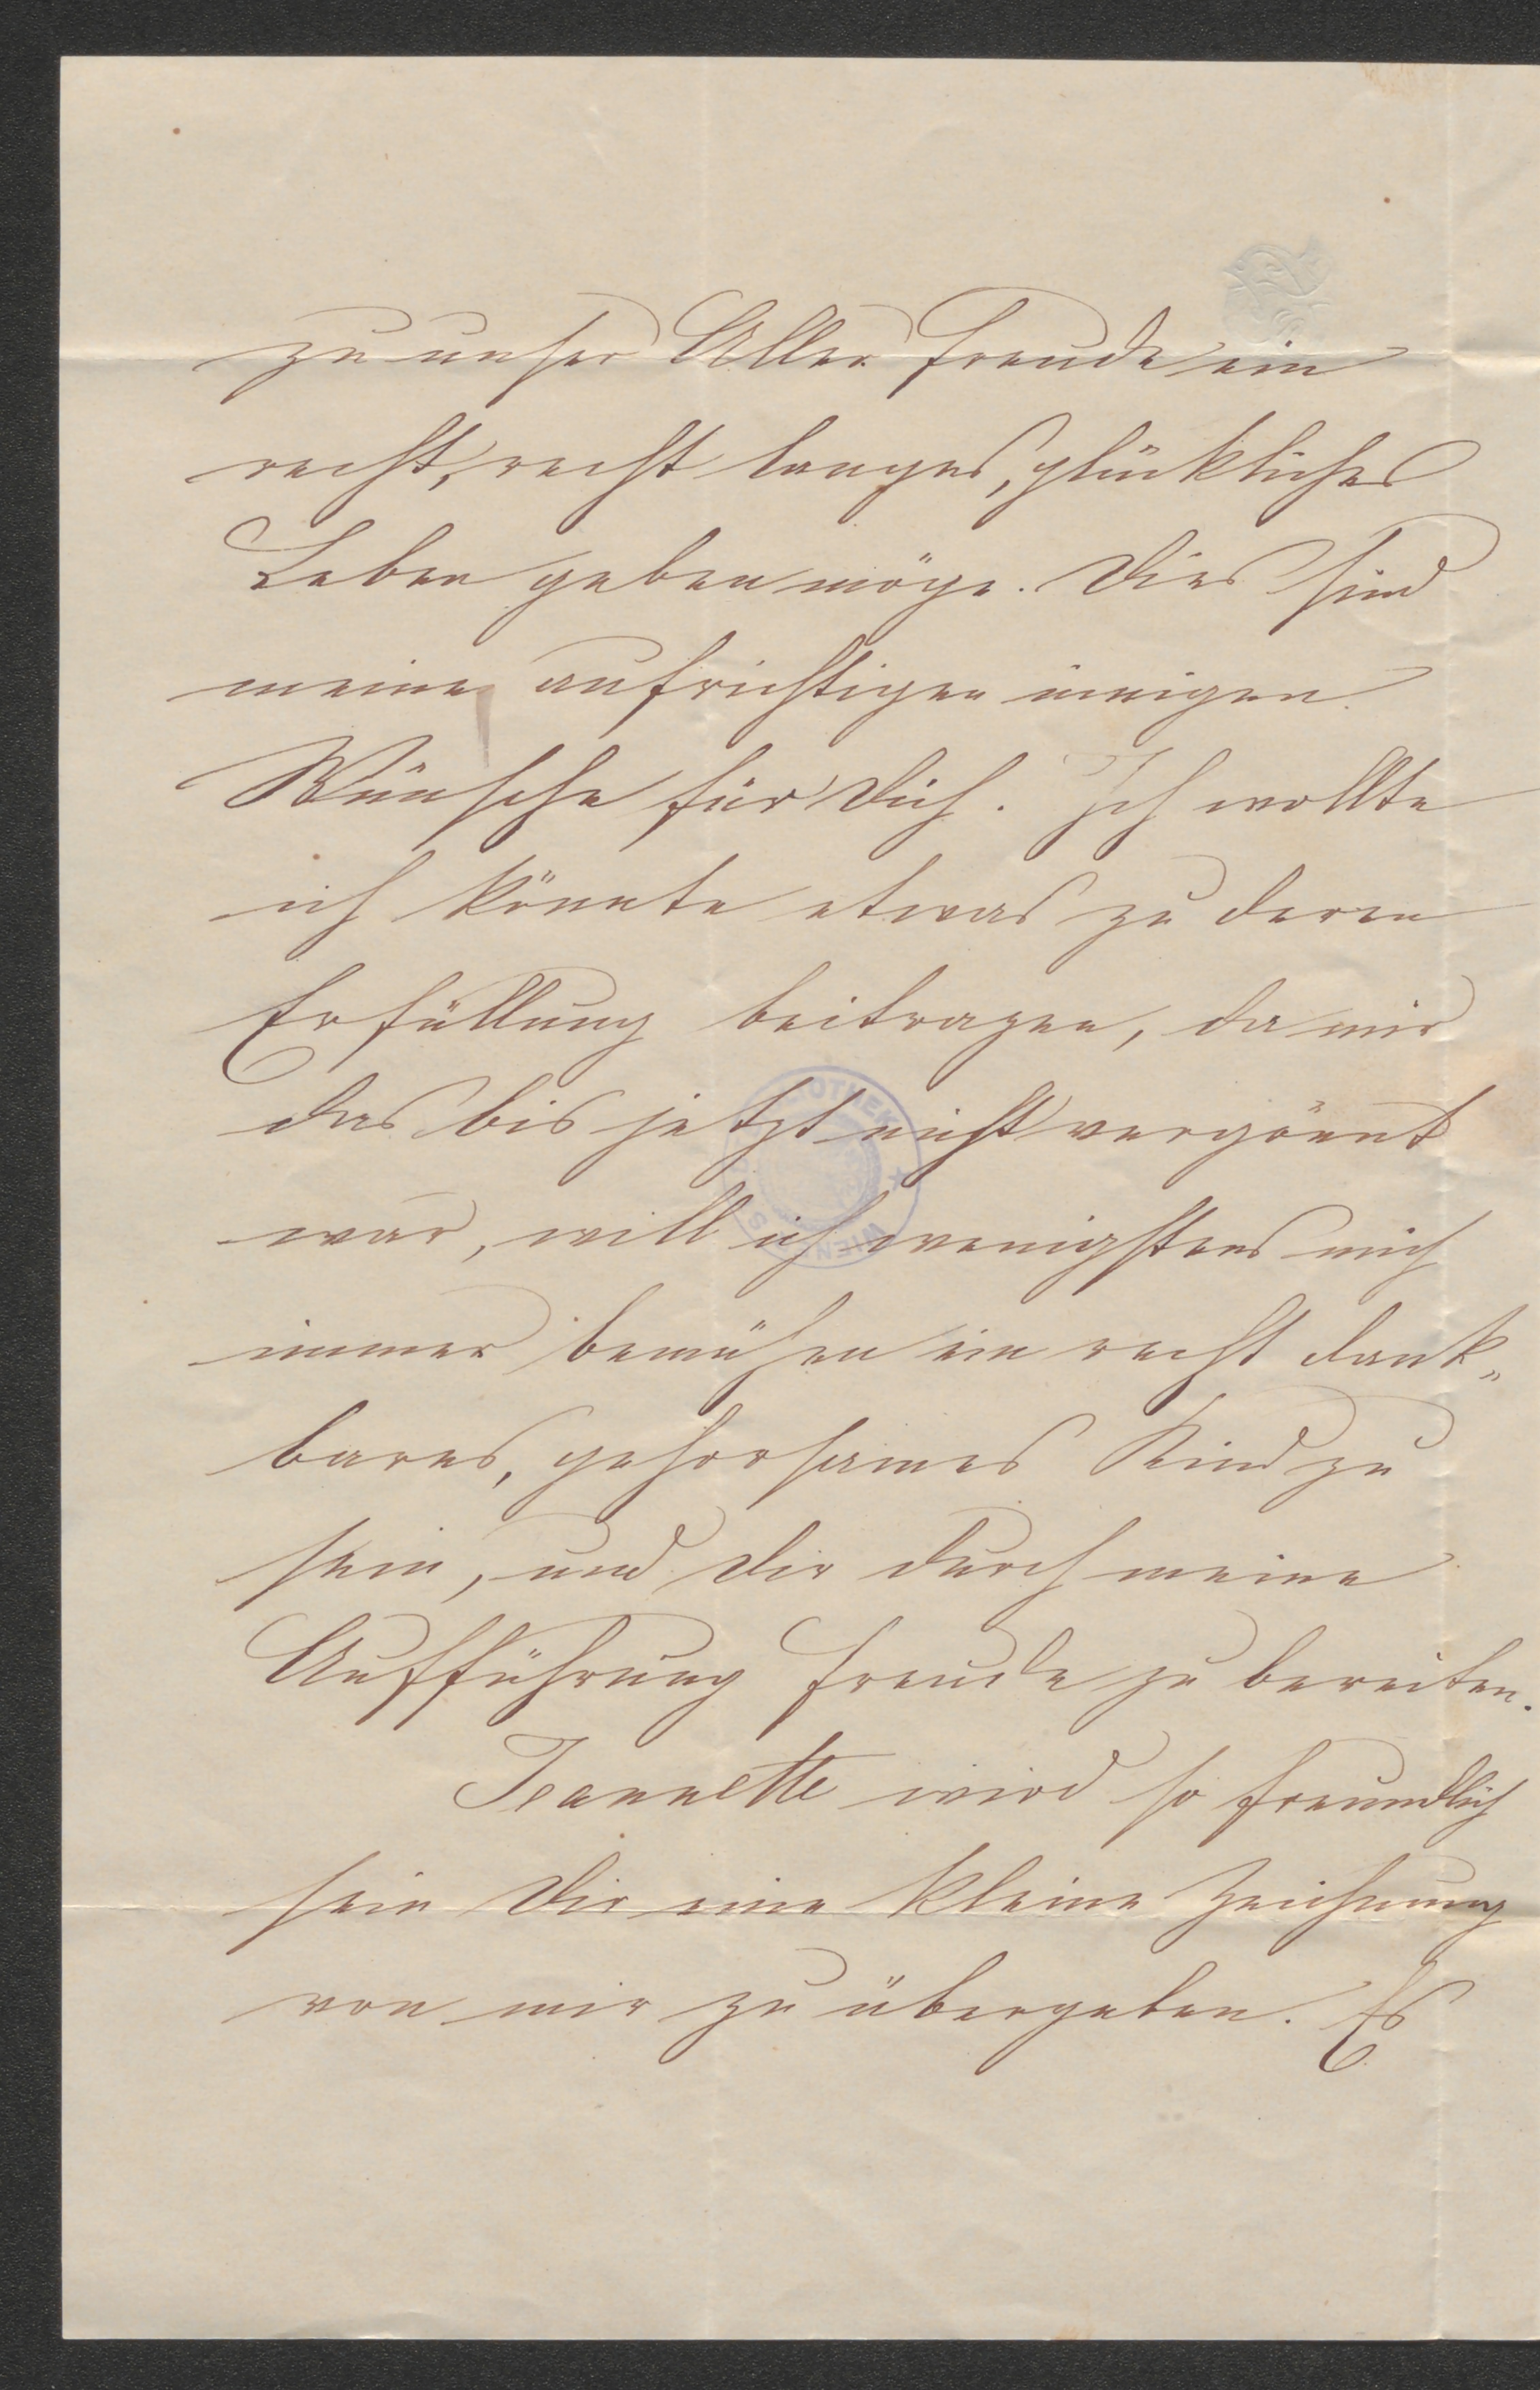 zu unser Aller Freude ein
recht, recht langes, glückliches
Leben geben möge. Dies sind
meine aufrichtigen innigen
Wünsche für Dich. Ich wollte
ich könnte etwas zu deren
Erfüllung beitragen, da mir
das bis jetzt nicht vergönnt
war, will ich wenigstens mich
immer bemühen ein recht dank„
bares, gehorsames Kind zu
sein, und Dir durch meine
Aufführung Freude zu bereiten.
Jeannette wird so freundlich
sein Dir eine kleine Zeichnung
von mir zu übergeben. Es